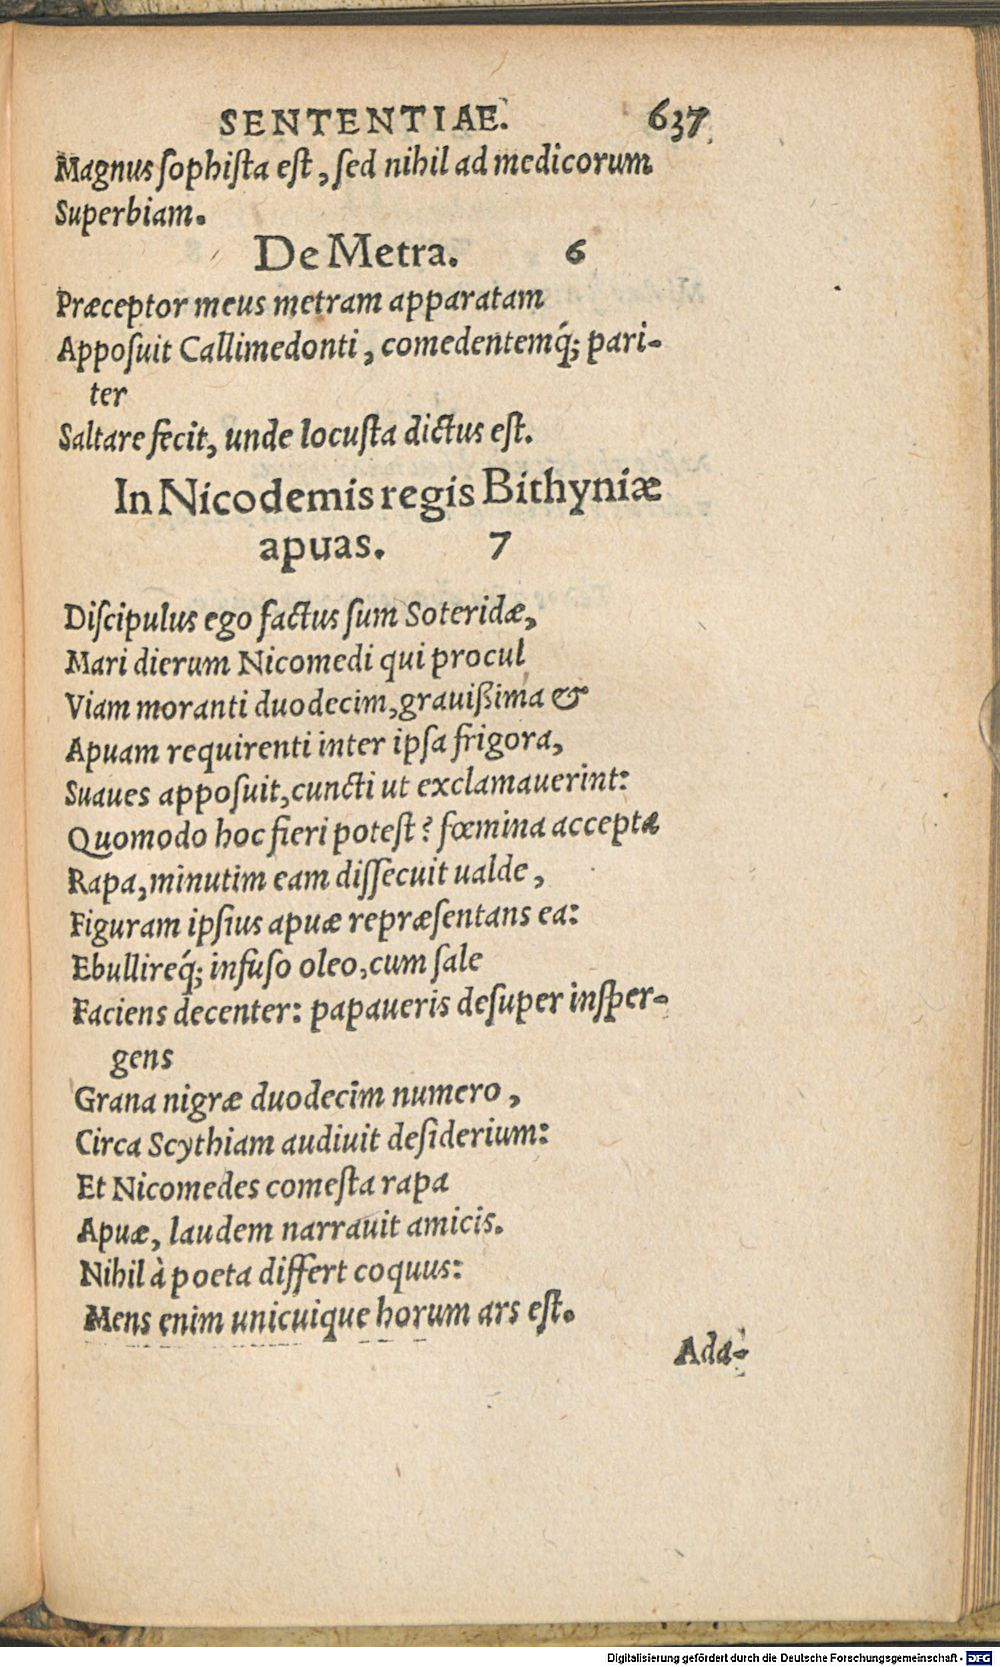 SENTENTIAE. 637
Magnus sophista est, sed nihil ad medicorum
Superbiam.
De Metra. 6
Præceptor meus metram apparatam
Apposuit Callimedonti, comedentemq́; pari-
ter
Saltare fecit, unde locusta dictus est.
In Nicodemis regis Bithyniæ
apuas. 7
Discipulus ego factus sum Soteridæ,
Mari dierum Nicomedi qui procul
Viam moranti duodecim, grauißima &
Apuam requirenti inter ipsa frigora,
Suaues apposuit, cuncti ut exclamauerint:
Quomodo hoc fieri potest? fœmina accepta
Rapa, minutim eam dissecuit ualde,
Figuram ipsius apuæ repræsentans ea:
Ebullireq́; infuso oleo, cum sale
Faciens decenter: papaueris desuper insper-
gens
Grana nigræ duodecim numero,
Circa Scythiam audiuit desiderium:
Et Nicomedes comesta rapa
Apuæ, laudem narrauit amicis.
Nihil à poeta differt coquus:
Mens enim unicuique horum ars est.
Ada-
Digitalisierung gefördert durch die Deutsche Forschungsgemeinschaft - DFG